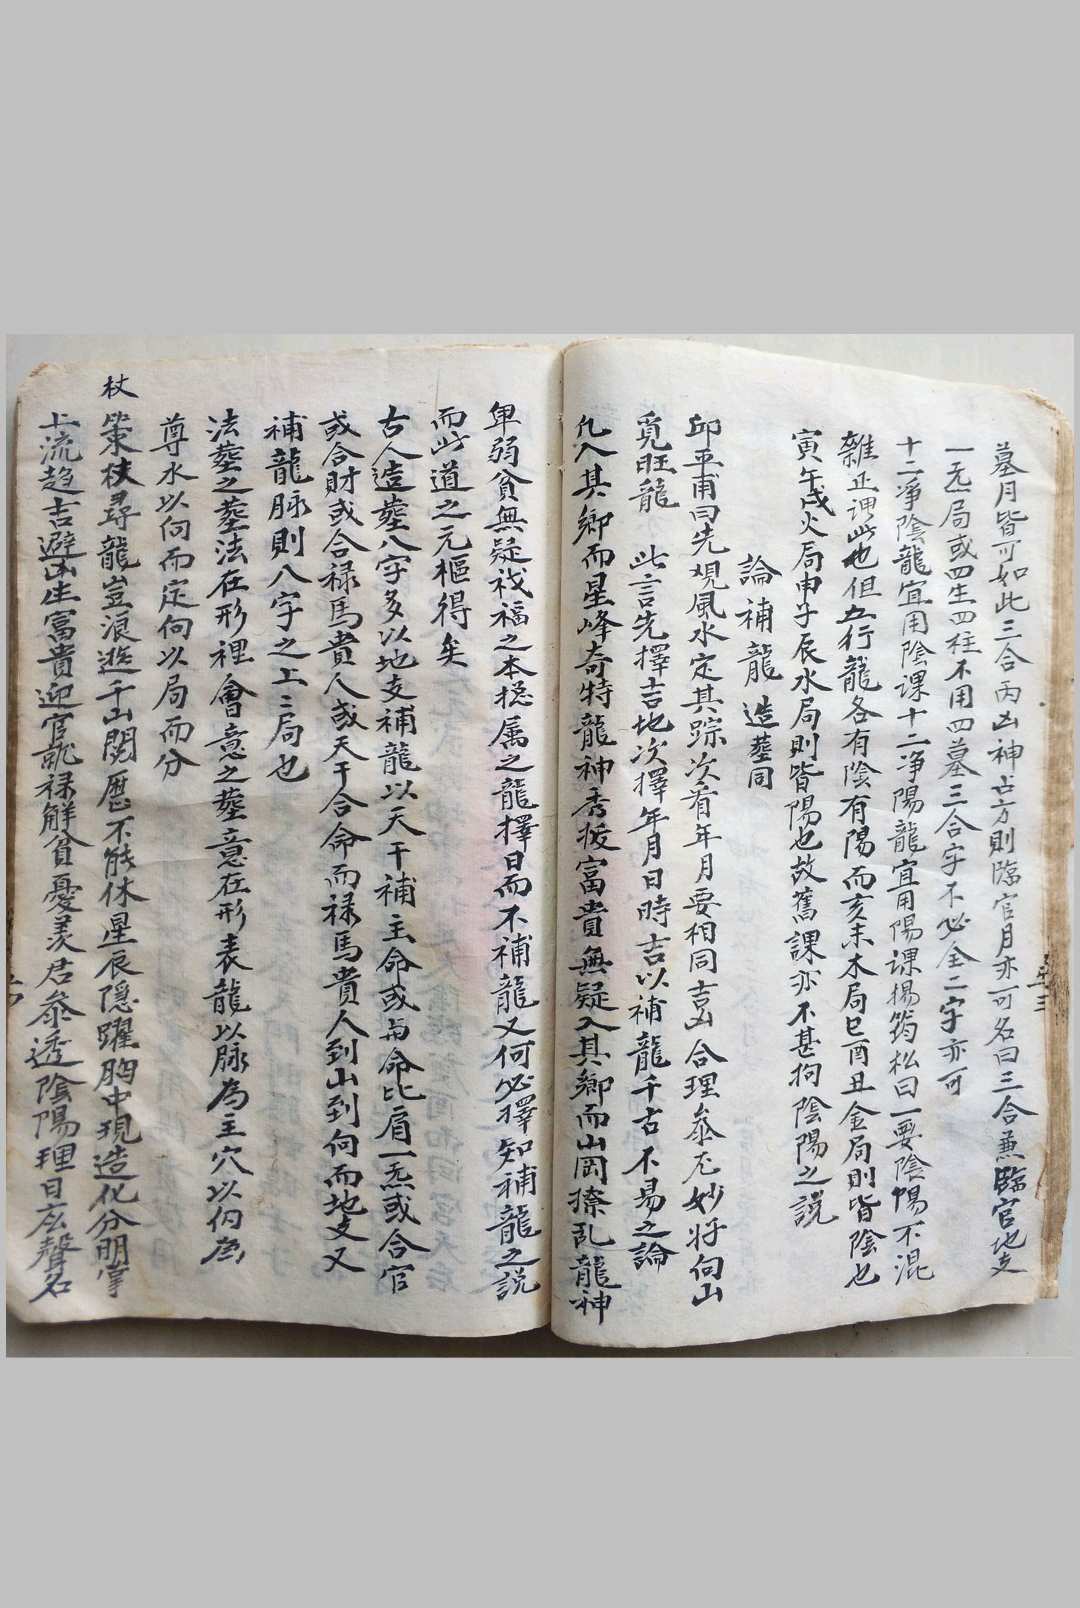 墓月皆可如此三合丙凶神古方則臨官月亦可名曰三合兼臨官地支
一炁局或四生四柱不用四墓三合字不必全二字亦可
十二凈陰龍宜用陰课十二净陽龍宜用陽课楊筠松曰一要陰陽不混
雜正谓此也但五行龍各有陰有陽而亥未木局巳酉丑金局則皆陰也
寅午戌火局申子辰水局則皆陽也故舊課亦不甚拘陰陽之説
論補龍 造葬同
邱平甫曰先覌風水定其踪次看年月要相同吉凶合理叅玄妙将向山
覓旺龍 此言先擇吉地次擇年月日時吉以補龍千古不易之論
凡入其鄉而星峰奇特龍神秀拔富貴無疑入其鄉而山岡撩乱龍神
卑弱貧無疑禍福之本揔属之龍擇日而不補龍又何必擇知補龍之説
而此道之元樞得矣
古人造葬八字多以地支補龍以天干補主命或与命比肩一炁或合官
或合財或合禄馬貴人或天干合命而禄馬貴人到山到向而地支又
補龍脉則八字之上三局也
法葬之葬法在形裡會意之葬意在形表龍以脉為主穴以向為
尊水以向而定向以局而分
杖
策杖尋龍豈浪遊千山閱歷不能休星辰隱躍胸中現造化分明掌
上流趋吉避凶生富貴迎官就禄解貧憂羡君叅透陰陽理日后聲名